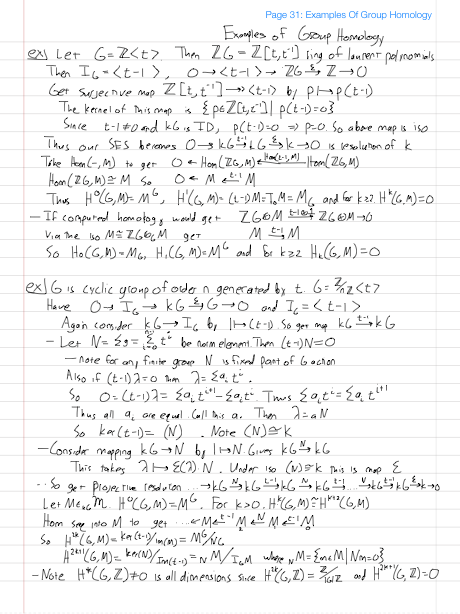 Page 31: Examples Of Group Homology
Examples of Group Homology
ex) Let G=ℤ<t>. Then ℤG=ℤ[t,t⁻¹] ring of laurent polynomials
Then I_G=<t-1>, 0→<t-1>→ℤG →^ε ℤ→0
Get surjective map ℤ[t,t⁻¹]→<t-1> by p↦p(t-1)
The kernel of this map is {p∈ℤ[t,t⁻¹] | p(t-1)=0}
Since t-1≠0 and kG is ID, p(t-1)=0 ⇒ p=0. So above map is iso
Thus our SES becomes 0→kG →^{t-1} kG →^ε k→0 is resolution of k
Take Hom(-,M) to get 0←Hom(ℤG,M) ←^{Hom(t-1,M)} Hom(ℤG,M)
Hom(ℤG,M)≅M so 0←M ←^{t-1} M
Thus H⁰(G,M)=M^G, H¹(G,M)=M/(t-1)M=M/I_GM=M_G and for k≥2 H^k(G,M)=0
- If computed homology would get ℤG⊗M →^{t-1⊗1} ℤG⊗M→0
Via the iso M≅ℤG⊗_G M get M →^{t-1} M
So H₀(G,M)=M_G, H₁(G,M)=M^G and for k≥2 H_k(G,M)=0
ex) G is cyclic group of order n generated by t. G=ℤ/nℤ<t>
Have 0→I_G→kG →^ε G→0 and I_G=<t-1>
Again consider kG→I_G by 1↦(t-1). So get map kG →^{t-1} kG
- Let N=Σg=Σ_{i=0} t^i be norm element. Then (t-1)N=0
- note for any finite group N is fixed point of G action
Also if (t-1)λ=0 then λ=Σa_i t^i.
So 0=(t-1)λ=Σa_i t^{i+1}-Σa_i t^i. Thus Σa_i t^i=Σa_i t^{i+1}
Thus all a_i are equal. Call this a. Then λ=aN
So ker(t-1)=(N). Note (N)≅k
- Consider mapping kG→N by 1↦N. Gives kG →^N kG
This takes λ↦ε(λ)·N. Under iso (N)≅k this is map ε
- So get projective resolution ...→kG →^N kG →^{t-1} kG →^N kG →^{t-1} kG ... →^N kG →^{t-1} kG →^ε k→0
Let M∈_{kG}M. H⁰(G,M)=M^G. For k>0. H^k(G,M)≅H^{k+2}(G,M)
Hom seq into M to get ...←M ←^{t-1} M ←^N M ←^{t-1} M
So H^{2k}(G,M)=ker(t-1)/im(N)=M^G/NG
H^{2k+1}(G,M)=ker(N)/Im(t-1)=_N M/I_G M where _N M={m∈M | Nm=0}
- Note H^k(G,ℤ)≠0 is all dimensions since H^{2k}(G,ℤ)=ℤ/|G|ℤ and H^{2k+1}(G,ℤ)=0